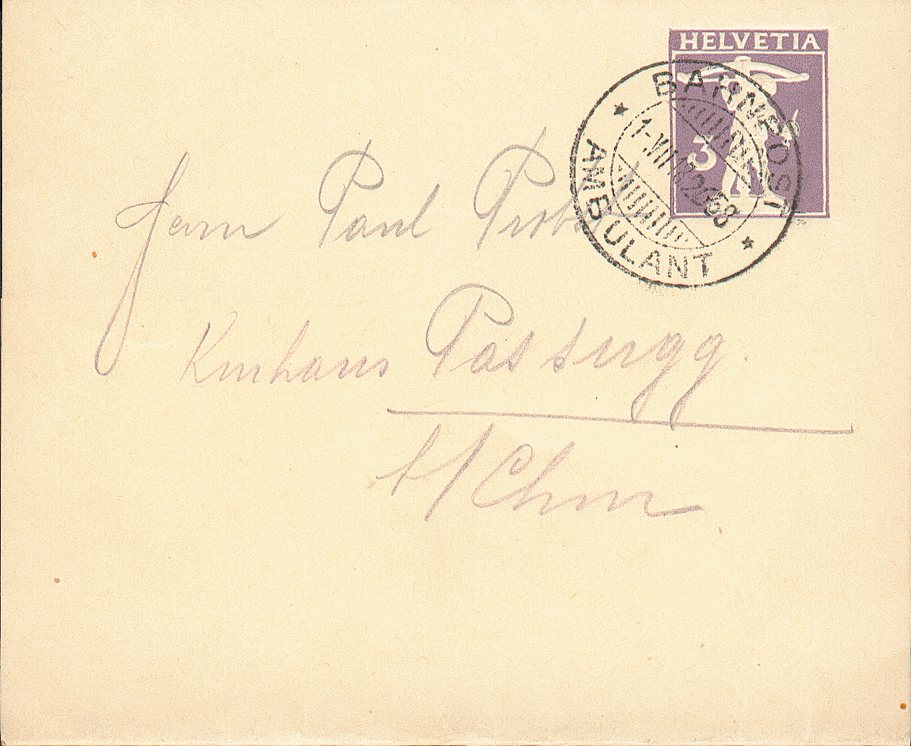 HELVETIA
3
BAHNPOST
AMBULANT
Herrn Paul
Kurhaus Passugg.
b/Chur